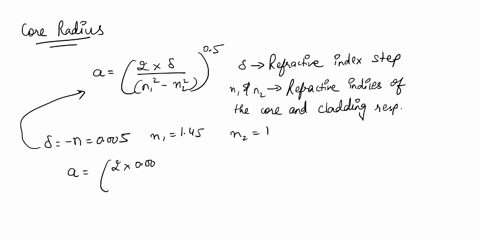 Core Radius
a = (2 × δ / (n₁² - n₂²))^0.5
δ → Refractive index step
n₁ & n₂ → Refractive indices of
the core and cladding resp.
δ = -n = 0.005   n₁ = 1.45   n₂ = 1
a = (2 × 0.00